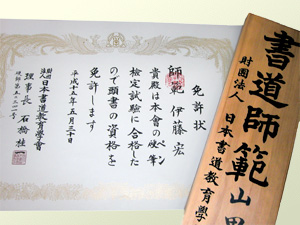 免許状
師範 伊藤宏
貴殿は本會の硬筆ペン
検定試験に合格した
ので頭書の資格を
免許します
平成十五年五月三十日
財団法人 日本書道教育學會
理事長 石橋桂一
書道師範 山
財團法人 日本書道教育學